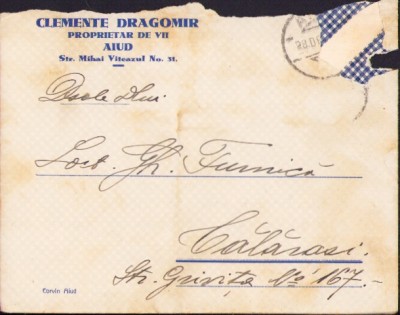 CLEMENTE DRAGOMIR
PROPRIETAR DE VII
AIUD
Str. Mihai Viteazul No. 31.
Dsale Dlui
Loct. Gh. Furnică
Călărași.
Str. Grivița No 167.-
Corvin Aiud